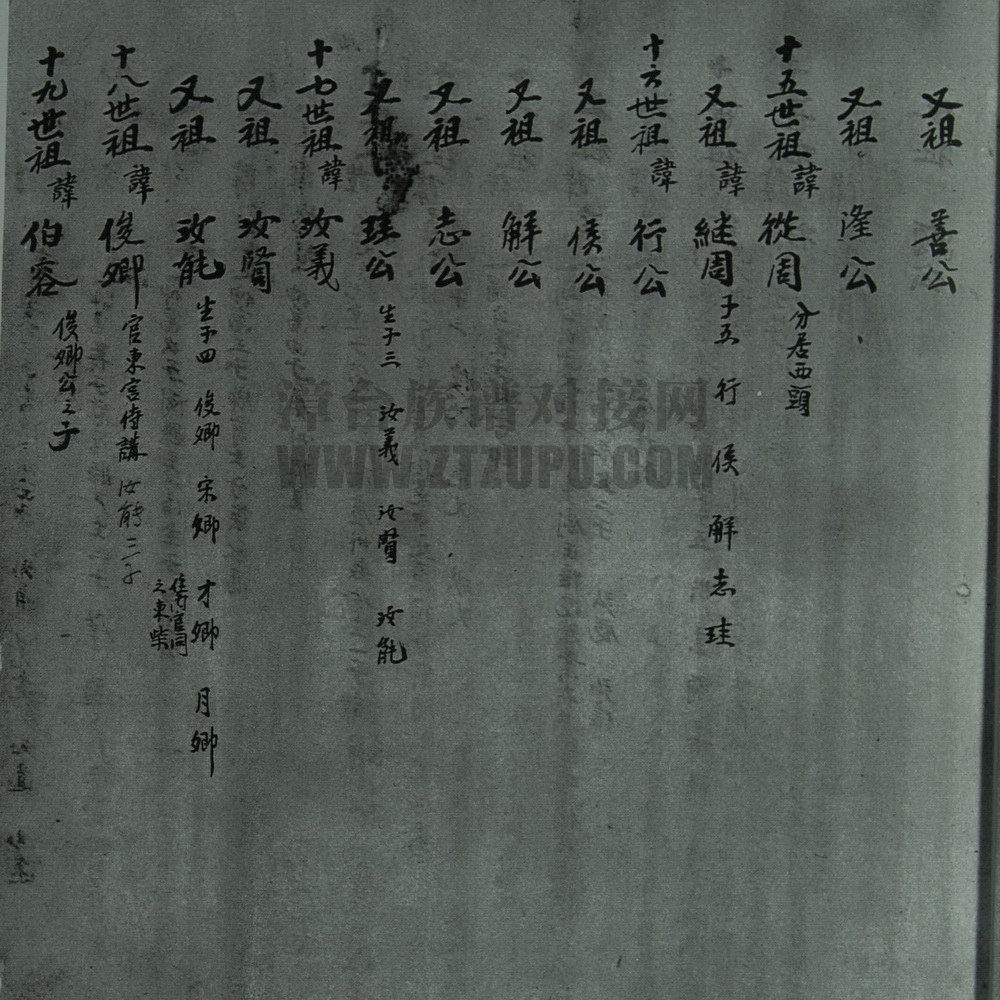 又祖 善公
又祖 隆公
十五世祖諱 從周 分居西頭
又祖諱 継周 子五 行 侯 解 志 珪
十六世祖諱 行公
又祖 侯公
又祖 解公
又祖 志公
又祖 珪公 生子三 汝義 汝賢 汝能
十七世祖諱 汝義
又祖 汝賢
又祖 汝能 生子四 俊卿 宋卿 才卿 月卿
之東柴
十八世祖諱 俊卿 官東宫侍講 汝能二子
十九世祖諱 伯容 俊卿公之子
漳台族谱对接网
WWW.ZTZUPU.COM